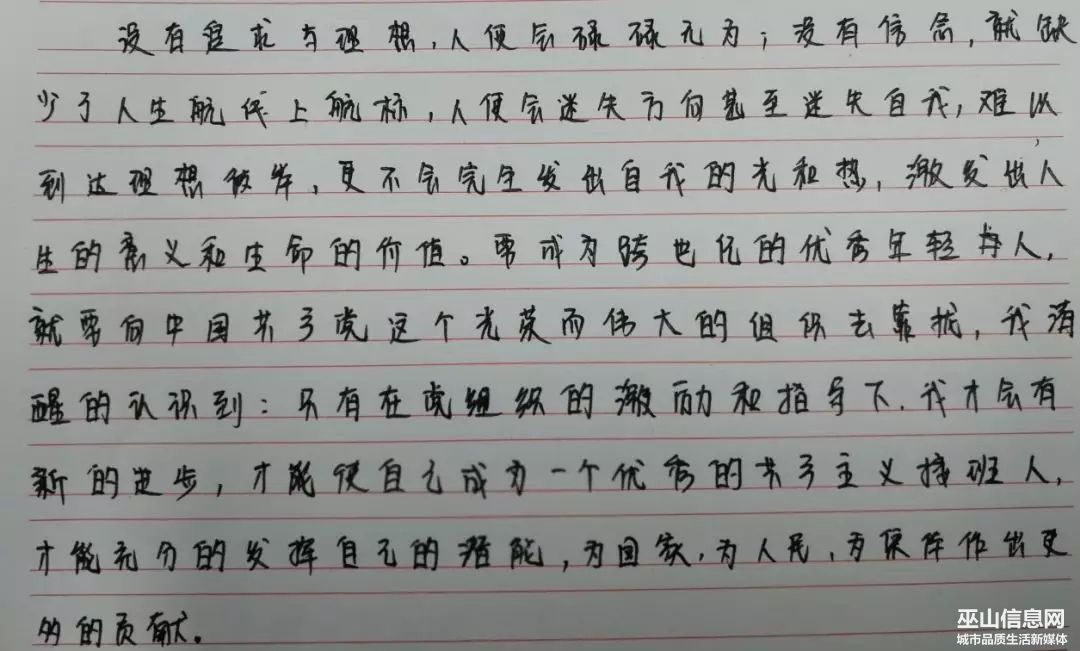 没有追求与理想，人便会碌碌无为；没有信念，就缺
少了人生航线上航标，人便会迷失方向甚至迷失自我，难以
到达理想彼岸，更不会完全发出自我的光和热，激发出人
生的意义和生命的价值。要成为跨世纪的优秀年轻人，
就要向中国共产党这个光荣而伟大的组织去靠拢，我清
醒的认识到：只有在党组织的激励和指导下，我才会有
新的进步，才能使自己成为一个优秀的共产主义接班人，
才能充分的发挥自己的潜能，为国家，为人民，为集体作出更
多的贡献。
巫山信息网
城市品质生活新媒体